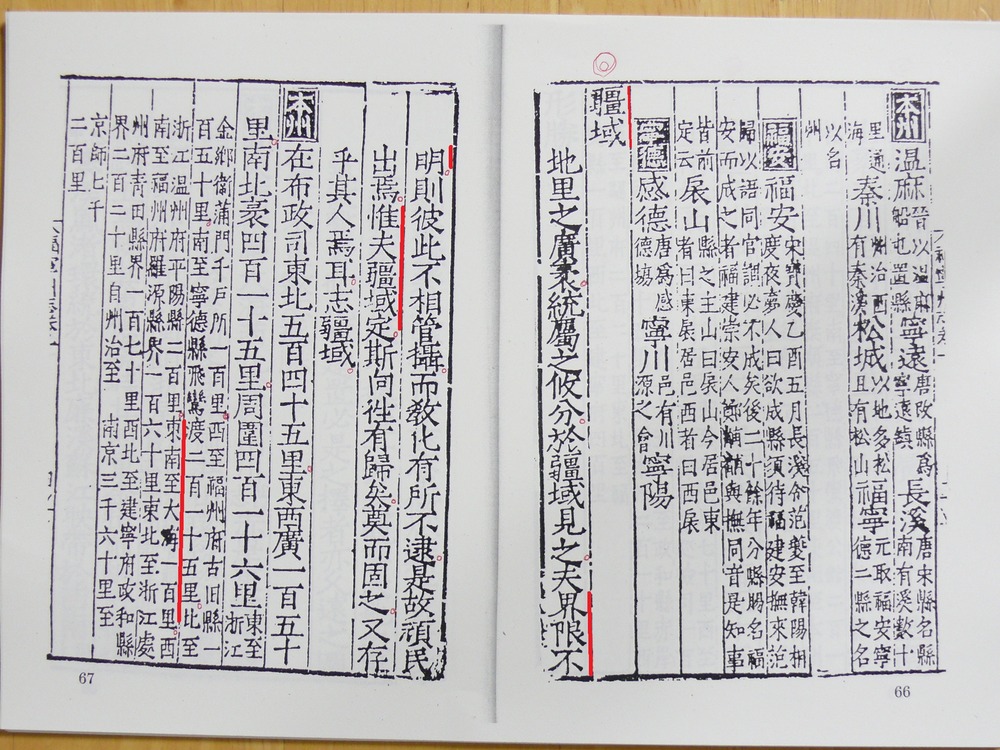 本州 溫麻 晉以溫麻船屯置縣 寧遠 唐改縣爲寧遠鎮 長溪 唐宋縣名縣南有溪數十
里通海 秦川 州治西有秦溪 松城 以地多松且有松山 福寧 元取福安寧德二縣之名
以名州
福安 福安 宋寶慶乙酉五月長溪令范夔至韓陽相度夜夢人曰欲成縣須待福建安撫來范
歸以語同官謂必不成矣後二十餘年分縣賜名福安而成之者福建崇安人鄭黼黼與撫同音是知事
皆前定云 扆山 縣之主山曰扆山今居邑東者曰東扆居邑西者曰西扆
寧德 感德 唐爲感德場 寧川 邑有川源之會 寧陽
疆域
地里之廣袤統屬之攸分於疆域見之夫界限不
66
明則彼此不相管攝而敎化有所不逮是故頑民
出焉惟夫疆域定斯向徃有歸矣莫而固之又存
乎其人焉耳志疆域
本州 在布政司東北五百四十五里東西廣一百五十
里南北袤四百一十五里周圍四百一十六里 東至浙江
金鄉衛蒲門千戶所一百里西至福州府古田縣一百五十里南至寧德縣飛鸞渡二百一十五里北至
浙江溫州府平陽縣二百里東南至大海一百里西南至福州府羅源縣界一百六十里東北至浙江處
州府靑田縣界一百七十里西北至建寧府政和縣界二百二十里自州治至 南京三千六十里至
京師七千二百里
67